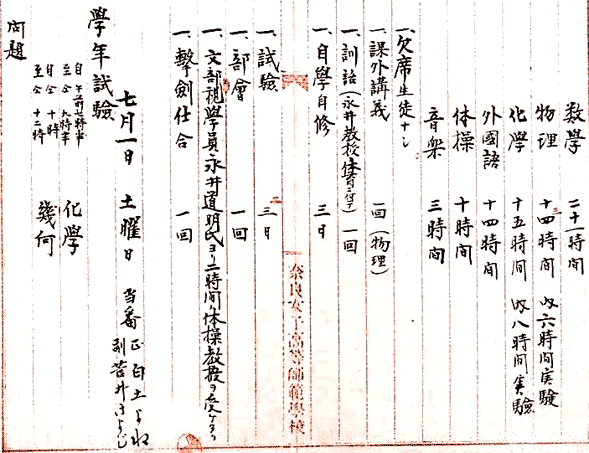 数學 二十一時間
物理 十四時間 内六時間実驗
化學 十五時間 内八時間実驗
外國語 十四時間
体操 十時間
音楽 三時間
一、欠席生徒ナシ
一、課外講義 一回(物理)
一、訓話(永井教授体育ニ付テ) 一回
一、自學自修 三日
奈良女子高等師範學校
一、試驗 三日
一、部會 一回
一、文部視學員永井道明氏ヨリ二時間体操教授ヲ受ケタリ
一、擊劍仕合 一回
七月一日 土曜日 当番 正 白土よね
副 苦井
學年試驗
自午前七時半 至仝 九時半 化學
自仝 十時 至仝 十二時 幾何
問題